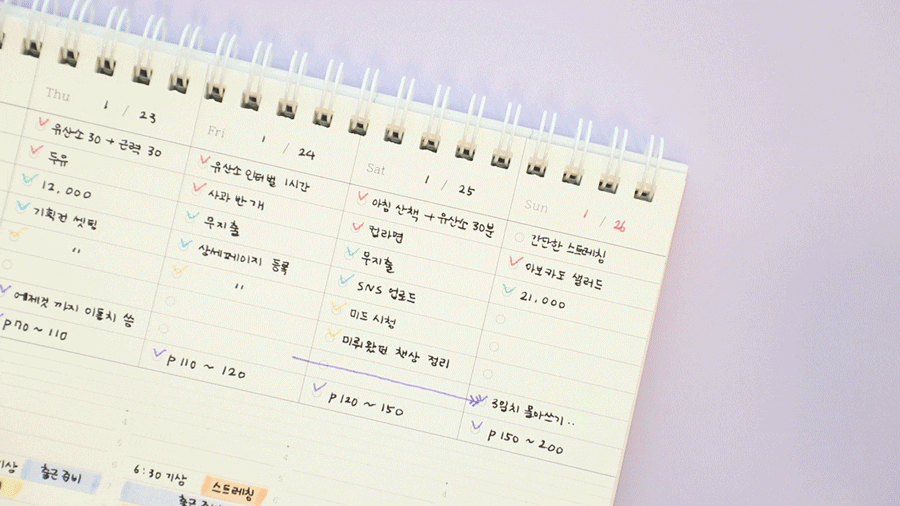 Thu 1 / 23
유산소 30 + 근력 30
두유
12,000
기획전 셋팅
"
어제것 까지 이틀치 씀
P70 ~ 110
Fri 1 / 24
유산소 인터벌 1시간
사과 반 개
무지출
상세페이지 등록
"
P110 ~ 120
Sat 1 / 25
아침 산책 + 유산소 30분
컵라면
무지출
SNS 업로드
미드 시청
미뤄왔던 책상 정리
P120 ~ 150
Sun 1 / 26
간단한 스트레칭
아보카도 샐러드
21,000
3일치 몰아쓰기..
P150 ~ 200
기상
출근 준비
6:30 기상
스트레칭
출근 준비